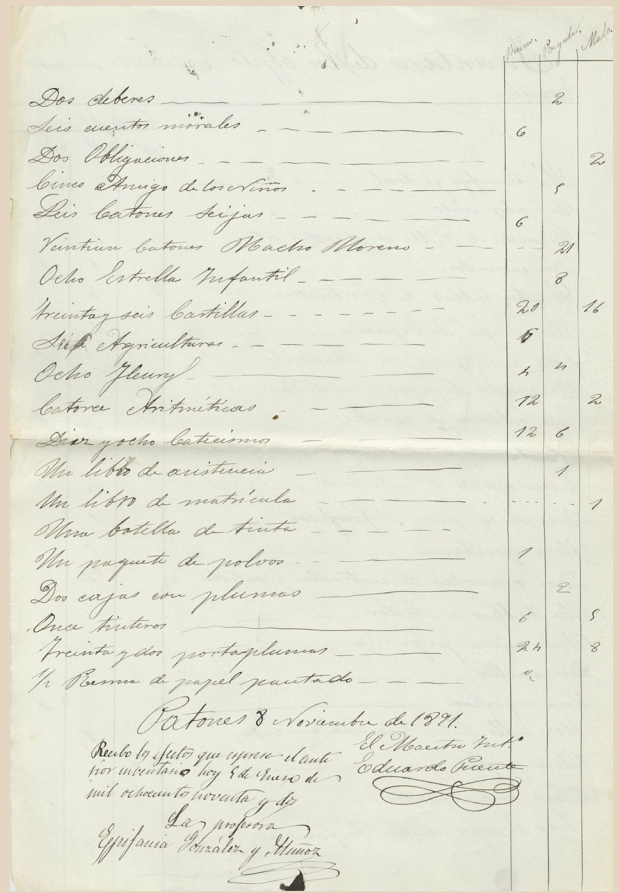 Bueno. Regular. Malo.
Dos deberes 2
Seis cuentos morales 6
Dos Obligaciones 2
Cinco Amigo de los Niños 5
Seis Catones Seijas 6
Veintiun Catones Macho Moreno 21
Ocho Estrella Infantil 8
Treinta y seis Cartillas 20 16
Agriculturas
Ocho Fleury 4 4
Catorce Aritméticas 12 2
Diez y ocho Catecismos 12 6
Un libro de asistencia 1
Un libro de matrícula 1
Una botella de tinta
Un paquete de polvos 1
Dos cajas con plumas 2
Once tinteros 6 5
Treinta y dos portaplumas 24 8
1/2 Resma de papel pautado 1/2
Patones 8 Noviembre de 1891.
El Maestro Int.º
Eduardo Puente
Recibo los efectos que espresa el ante
rior inventario hoy 5 de Enero de
mil ochocientos noventa y dos
La profesora
Eppifania González y Muñoz